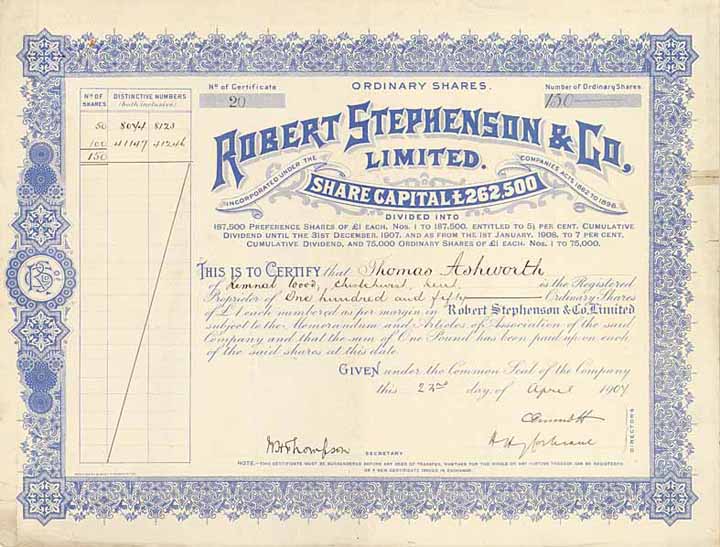 Nº OF SHARES
DISTINCTIVE NUMBERS
(both inclusive)
50 8074 8123
100 41147 41246
150
Nº of Certificate
20
ORDINARY SHARES.
Number of Ordinary Shares
150
ROBERT STEPHENSON & CO,
LIMITED.
INCORPORATED UNDER THE COMPANIES ACTS, 1862 TO 1898.
SHARE CAPITAL £262,500
DIVIDED INTO
187,500 PREFERENCE SHARES OF £1 EACH, NOS. 1 TO 187,500, ENTITLED TO 5½ PER CENT. CUMULATIVE
DIVIDEND UNTIL THE 31ST DECEMBER, 1907, AND AS FROM THE 1ST JANUARY, 1908, TO 7 PER CENT.
CUMULATIVE DIVIDEND, AND 75,000 ORDINARY SHARES OF £1 EACH, NOS. 1 TO 75,000.
THIS IS TO CERTIFY that Thomas Ashworth
of Kemnal Wood, Chislehurst, Kent is the Registered
Proprietor of One hundred and fifty Ordinary Shares
of £1 each numbered as per margin in Robert Stephenson & Co, Limited
subject to the Memorandum and Articles of Association of the said
Company and that the sum of One Pound has been paid up on each
of the said shares at this date
GIVEN under the Common Seal of the Company
this 22nd day of April 1904
DIRECTORS
W H Thompson
SECRETARY
NOTE.—THIS CERTIFICATE MUST BE SURRENDERED BEFORE ANY DEED OF TRANSFER, WHETHER FOR THE WHOLE OR ANY PORTION THEREOF CAN BE REGISTERED
OR A NEW CERTIFICATE ISSUED IN EXCHANGE.